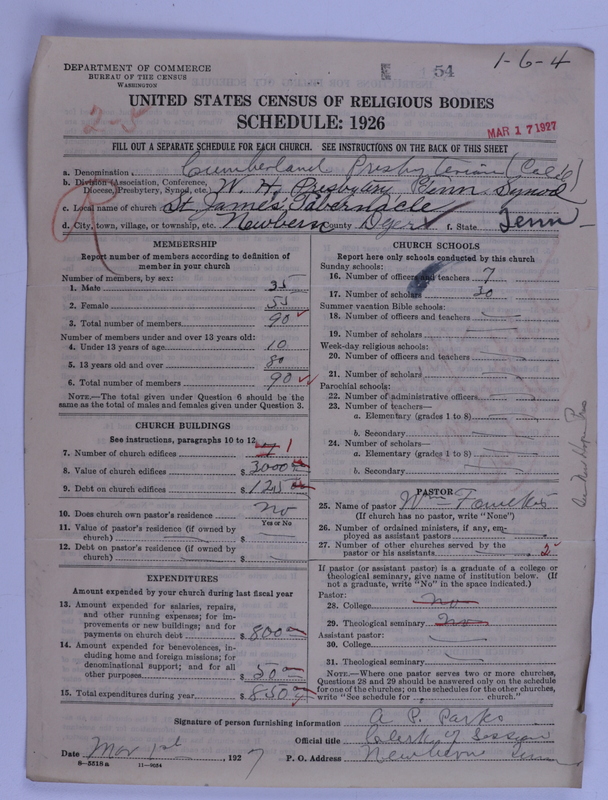 DEPARTMENT OF COMMERCE
BUREAU OF THE CENSUS
WASHINGTON
54
1-6-4
UNITED STATES CENSUS OF RELIGIOUS BODIES
SCHEDULE: 1926
2-5
MAR 17 1927
FILL OUT A SEPARATE SCHEDULE FOR EACH CHURCH. SEE INSTRUCTIONS ON THE BACK OF THIS SHEET
a. Denomination Cumberland Presbyterian (Col'd)
b. Division (Association, Conference, Diocese, Presbytery, Synod, etc.) W. H. Presbytery Tenn. Synod
c. Local name of church St James Tabernacle
d. City, town, village, or township, etc. Newbern County Dyer f. State Tenn
MEMBERSHIP
Report number of members according to definition of member in your church
Number of members, by sex:
1. Male 35
2. Female 55
3. Total number of members 90
Number of members under and over 13 years old:
4. Under 13 years of age 10
5. 13 years old and over 80
6. Total number of members 90
NOTE.—The total given under Question 6 should be the same as the total of males and females given under Question 3.
CHURCH BUILDINGS
See instructions, paragraphs 10 to 12
7. Number of church edifices 1
8. Value of church edifices $ 3000
9. Debt on church edifices $ 125
10. Does church own pastor's residence? no
Yes or No
11. Value of pastor's residence (if owned by church) $
12. Debt on pastor's residence (if owned by church) $
EXPENDITURES
Amount expended by church during last fiscal year
13. Amount expended for salaries, repairs, and other running expenses; for improvements or new buildings; and for payments on church debt $ 800
14. Amount expended for benevolences, including home and foreign missions; for denominational support; and for all other purposes $ 50
15. Total expenditures during year $ 850
CHURCH SCHOOLS
Report here only schools conducted by this church
Sunday schools:
16. Number of officers and teachers 7
17. Number of scholars 30
Summer vacation Bible schools:
18. Number of officers and teachers
19. Number of scholars
Week-day religious schools:
20. Number of officers and teachers
21. Number of scholars
Parochial schools:
22. Number of administrative officers
23. Number of teachers—
a. Elementary (grades 1 to 8)
b. Secondary
24. Number of scholars—
a. Elementary (grades 1 to 8)
b. Secondary
PASTOR
25. Name of pastor Wm
(If church has no pastor, write "None")
26. Number of ordained ministers, if any, employed as assistant pastors
27. Number of other churches served by the pastor or his assistants 2
If pastor (or assistant pastor) is a graduate of a college or theological seminary, give name of institution below. (If not a graduate, write "No" in the space indicated.)
Pastor:
28. College no
29. Theological seminary no
Assistant pastor:
30. College
31. Theological seminary
NOTE.—Where one pastor serves two or more churches, Questions 28 and 29 should be answered only on the schedule for one of the churches; on the schedules for the other churches, write "See schedule for church."
Signature of person furnishing information A P. Parks
Official title Clerk of Session
Date Mar 1st, 1927 P. O. Address Newbern Tenn
8—5518a 11—9034